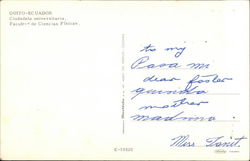 QUITO-ECUADOR
Ciudadela universitaria,
Facultad de Ciencias Físicas.
to my
Para mi
dear foster
querida
mother
madrina
Miss